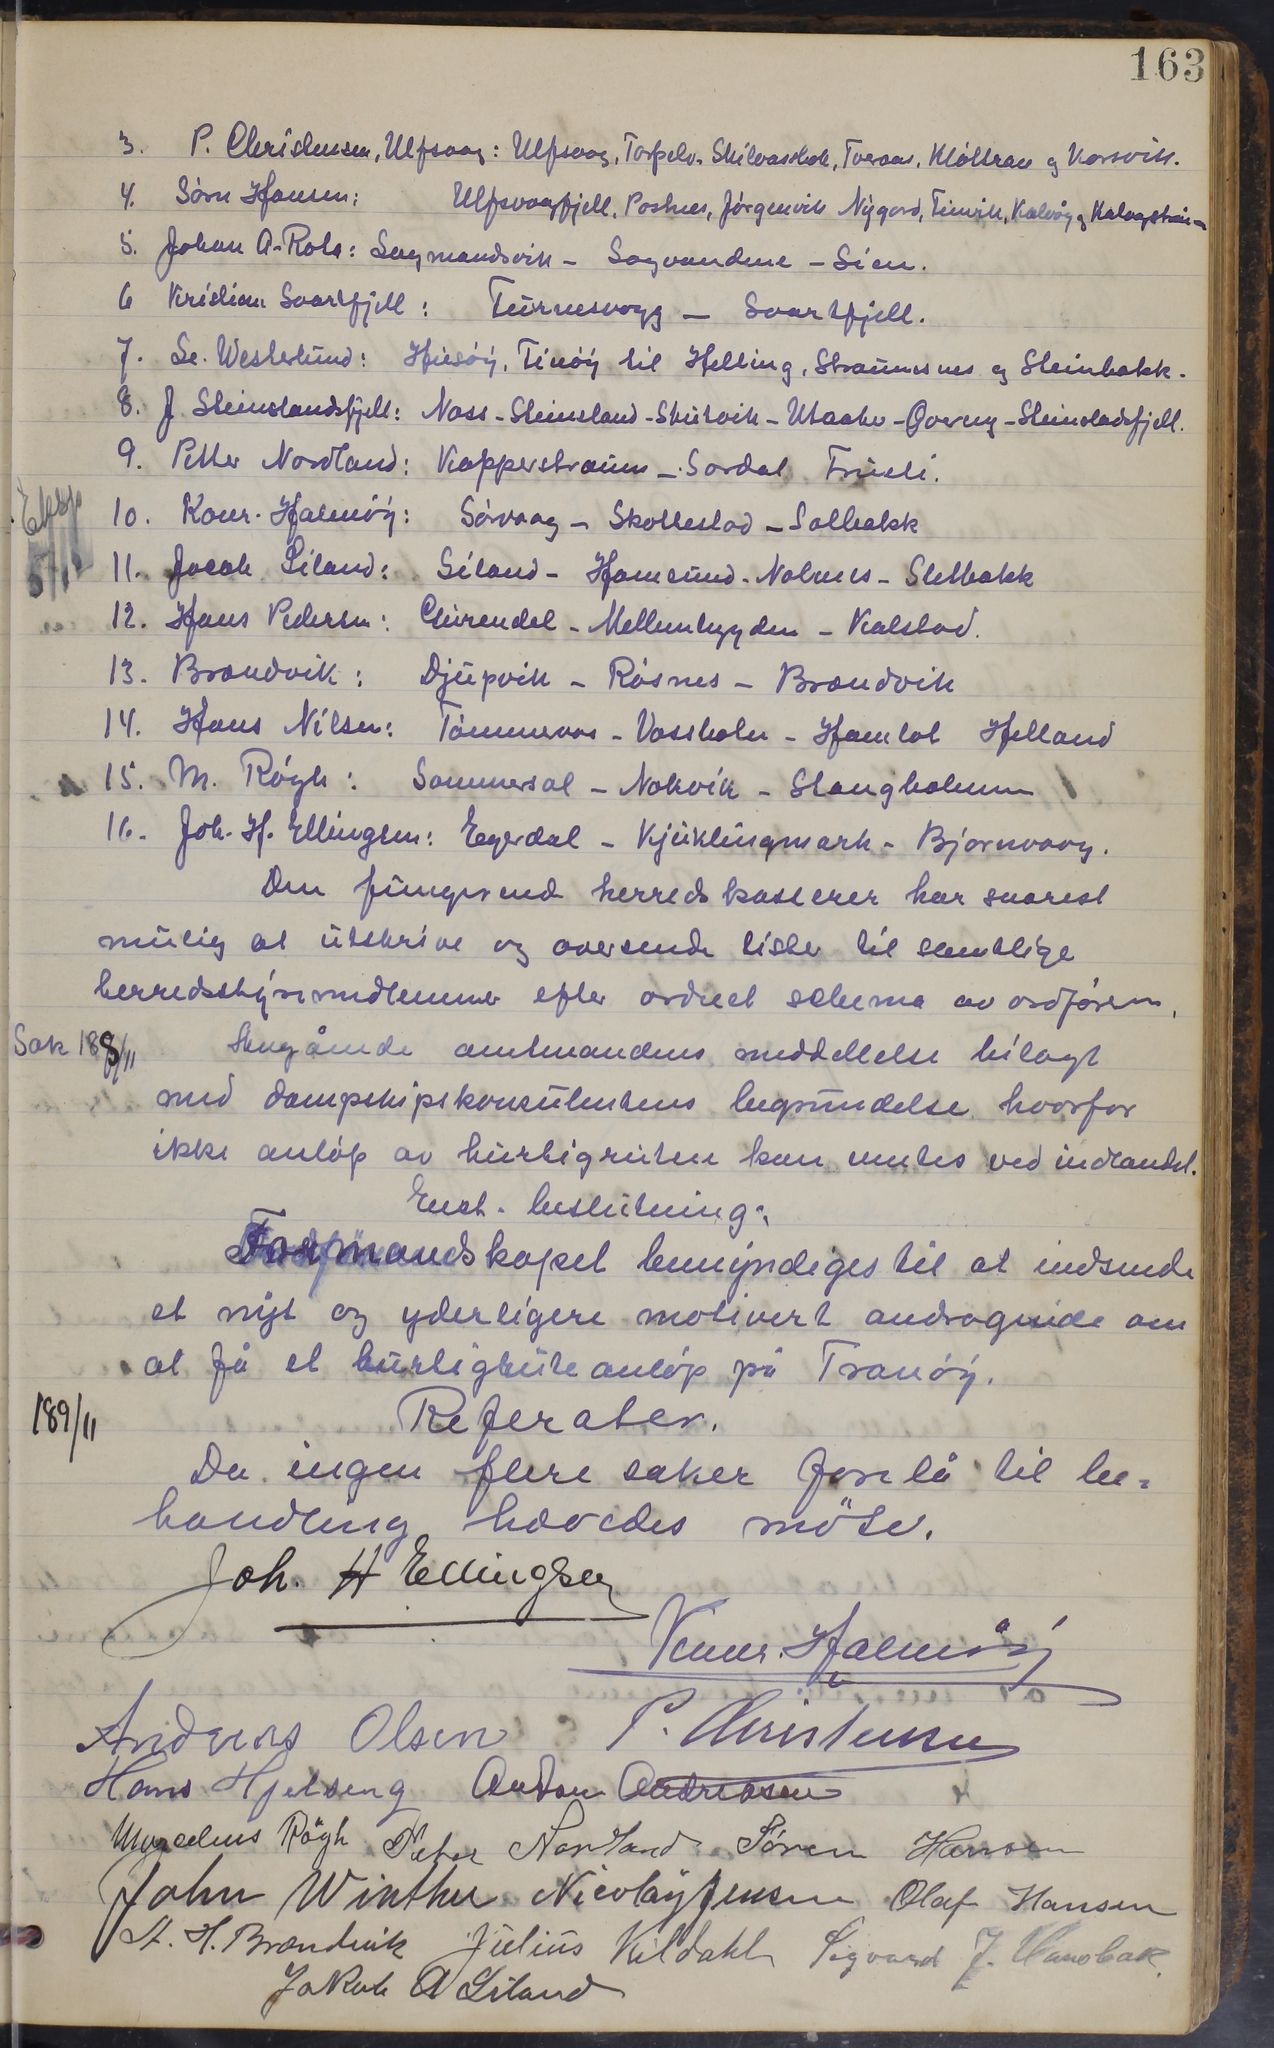 163
3. P. Christensen, Ulfsvaag: Ulfsvaag, Torpelv. Skilvassbak, Toraas, Klöttran og Korsvik.
4. Sörn Hansen: Ulfsvaagfjell, Posknes, Jörgenvik Nygord, Tinvik, Kalvöy og
5. Johan A. Rola: Sagmandsvik - Sagvandene - Sien.
6 Kristian Svartfjell: Turnesvagg - Svartfjell.
7. Se. Westerlund: Husöy, Tinöy til Helling, Straumsnes og Steinbakk.
8. J. Steinslandsfjell: Nass - Steinsland - Skutvik - Utaaker - - Steinsladsfjell.
9. Petter Nordland: Kopperstraum - Sordal Fruli.
10. Konr. Halmöy: Sörvaag - Skottestad - Solbakk
Eksp
11. Jacob Liland: Liland - Hamsund - Nolnes - Sletbakk
12. Hans Pedersn: - Mellembygden - Kalstad.
13. Brændvik: Djupvik - Rösnes - Brændvik
14. Hans Nilsen: Tömmeraas - Vassholm - Hamlot Helland
15. M. Rögh: Sommersal - Nokvik - Stangholmen
16. Joh. H. Ellingsen: Egerdal - Kjüklingmark - Bjørnvaag.
Den fungerend herredskasserer har snarest
mulig at utskrive og oversende lister til samtlige
herredsstyremedlemmer efter ordnet schema av ordfören.
Sak 188/11 Angående amtmandens meddellelse bilagt
med dampskipskonsulentens begrundelse hvorfor
ikke anlöp av hurtigruten kan ventes ved indlandet.
Enst. beslutning:
Formandskapet bemyndiges til at indsende
et nyt og yderligere motivert andragende om
at få et hurtigruteanlöp på Tranöy.
189/11 Referater.
Da ingen flere saker forelå til be-
handling hævedes möte.
Joh. H Ellingsen
Konr. Halmöy
Andreas Olsen P. Christensen
Hans Hjelseng Anton Andreasen
Marselius Rögh Peter Nordland Sören Hansen
John Winther Nicolay Jensen Olaf Hansen
A. H. Brændvik Julius Kildahl Sigvard J. Hanobak
Jakob A Liland